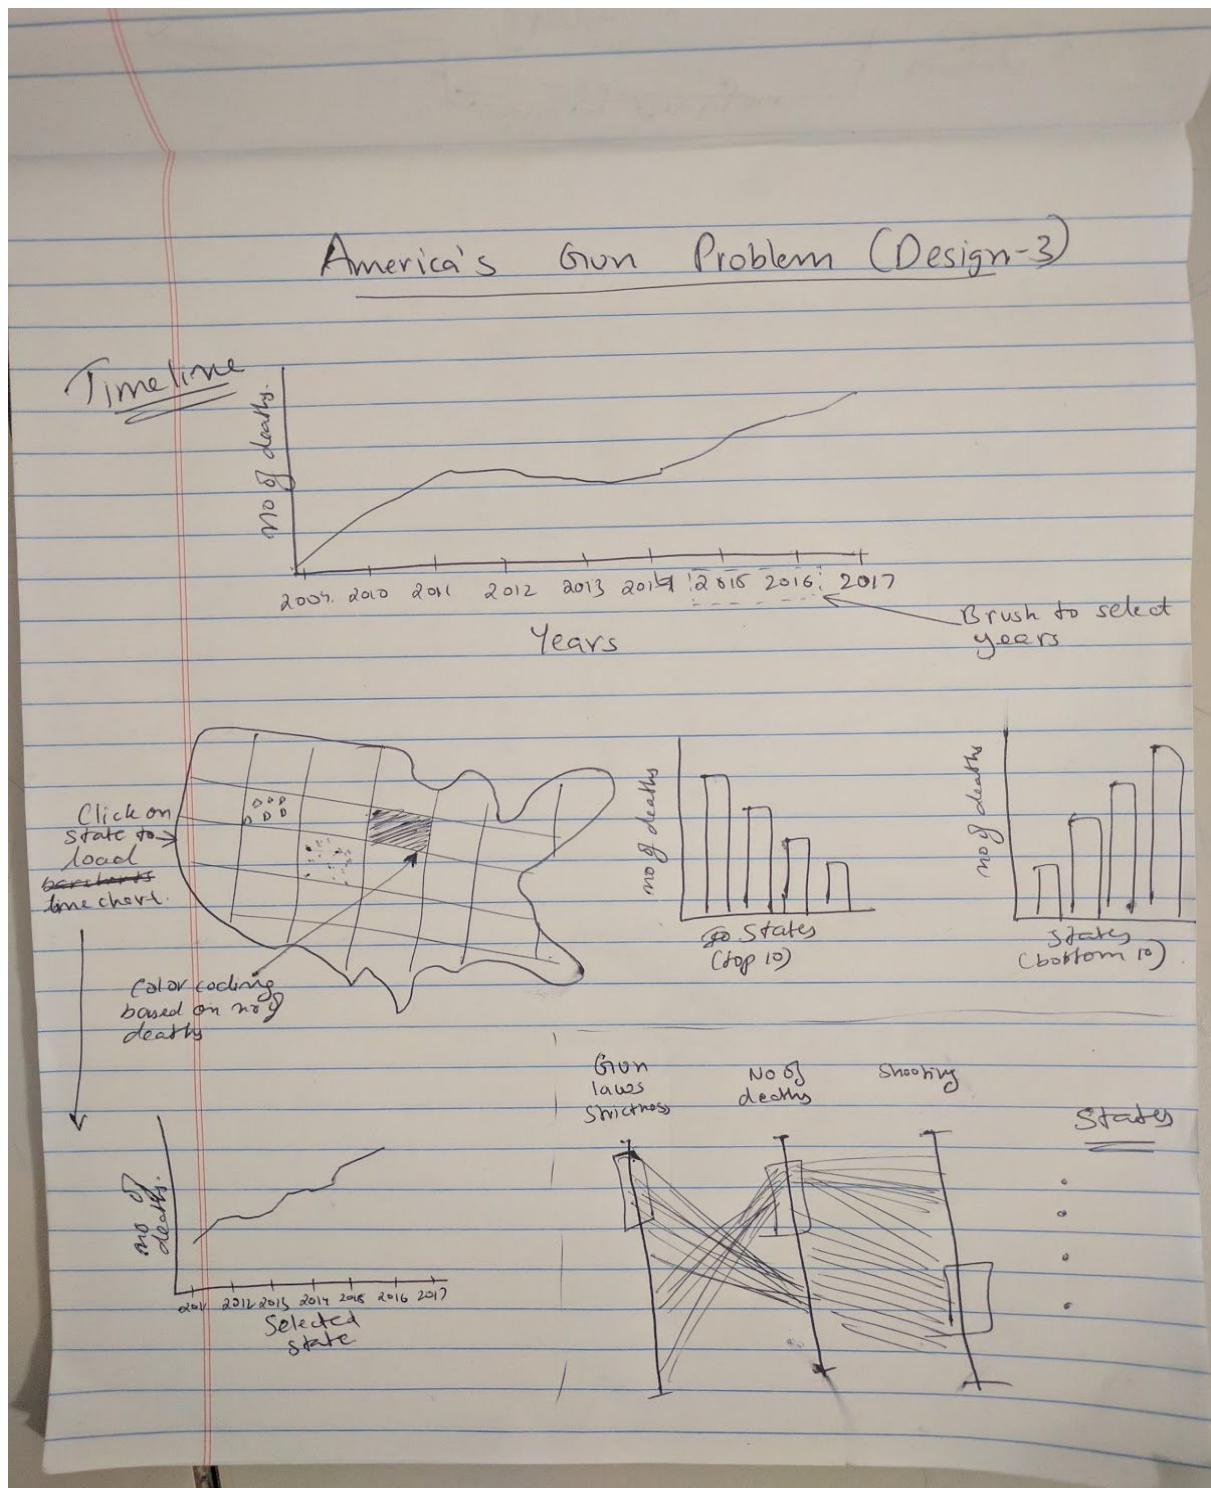 America's Gun Problem (Design-3)
Timeline
no of deaths.
2009. 2010 2011 2012 2013 2014 2015 2016 2017
Years
Brush to select
years
Click on
state to
load
barcharts
time chart.
Color coding
based on no of
deaths
no of deaths
States
(top 10)
no of deaths
States
(bottom 10)
no of
deaths.
2011 2012 2013 2014 2015 2016 2017
Selected
state
Gun
laws
strictness
No of
deaths
Shooting
States